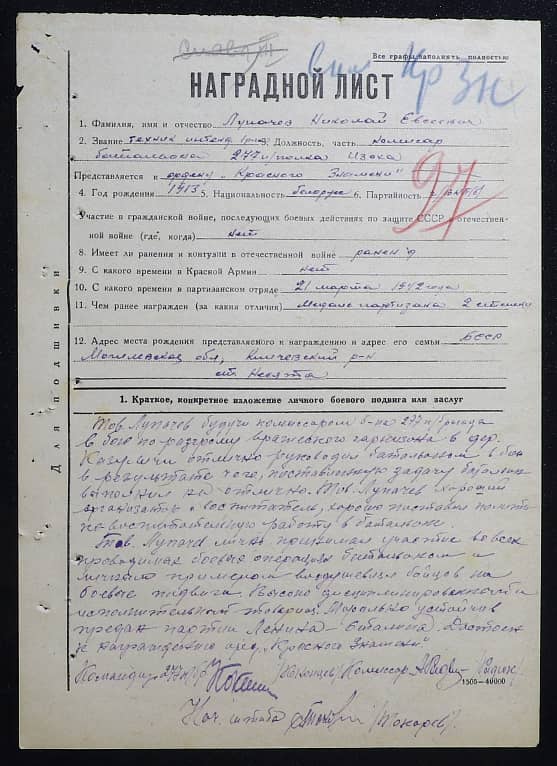 Слава III
Все графы заполнять полностью
Кр Зн
НАГРАДНОЙ ЛИСТ
1. Фамилия, имя и отчество Лупачев Николай Евсеевич
2. Звание техник интенд. I ранг Должность, часть комиссар
батальона 277 п/полка Изоха
Представляется к ордену „Красного Знамени"
97
4. Год рождения 1913 5. Национальность белорус 6. Партийность
7. Участие в гражданской войне, последующих боевых действиях по защите СССР и отечествен-
ной войне (где, когда) нет
8. Имеет ли ранения и контузии в отечественной войне ранен
9. С какого времени в Красной Армии нет
10. С какого времени в партизанском отряде 21 марта 1942 года
11. Чем ранее награжден (за какия отличия) Медаль партизана 2 степени
12. Адрес места рождения представляемого к награждению и адрес его семьи БССР
Могилевская обл, Кличевский р-н
ст. Несята
Для подшивки
1. Краткое, конкретное изложение личного боевого подвига или заслуг
Тов. Лупачев будучи комиссаром б-на 277 п/
в бою по разгрому вражеского гарнизона в дер.
Казуличи отлично руководил батальоном в бою
в результате чего, поставленную задачу батальон
выполнил на отлично. Тов. Лупачев хороший
организатор и воспитатель, хорошо поставил политико-
воспитательную работу в батальоне.
Тов. Лупачев лично принимал участие во всех
проводимых боевых операциях батальоном и
личным примером воодушевлял бойцов на
боевые подвиги. Высоко дисциплинированный и
исполнительный товарищ. Морально устойчив
предан партии Ленина – Сталина. Достоин
к награждению орд. „Красного Знамени"
Командир 277 Комиссар
1505—40000
Нач. штаба /Токарев/.